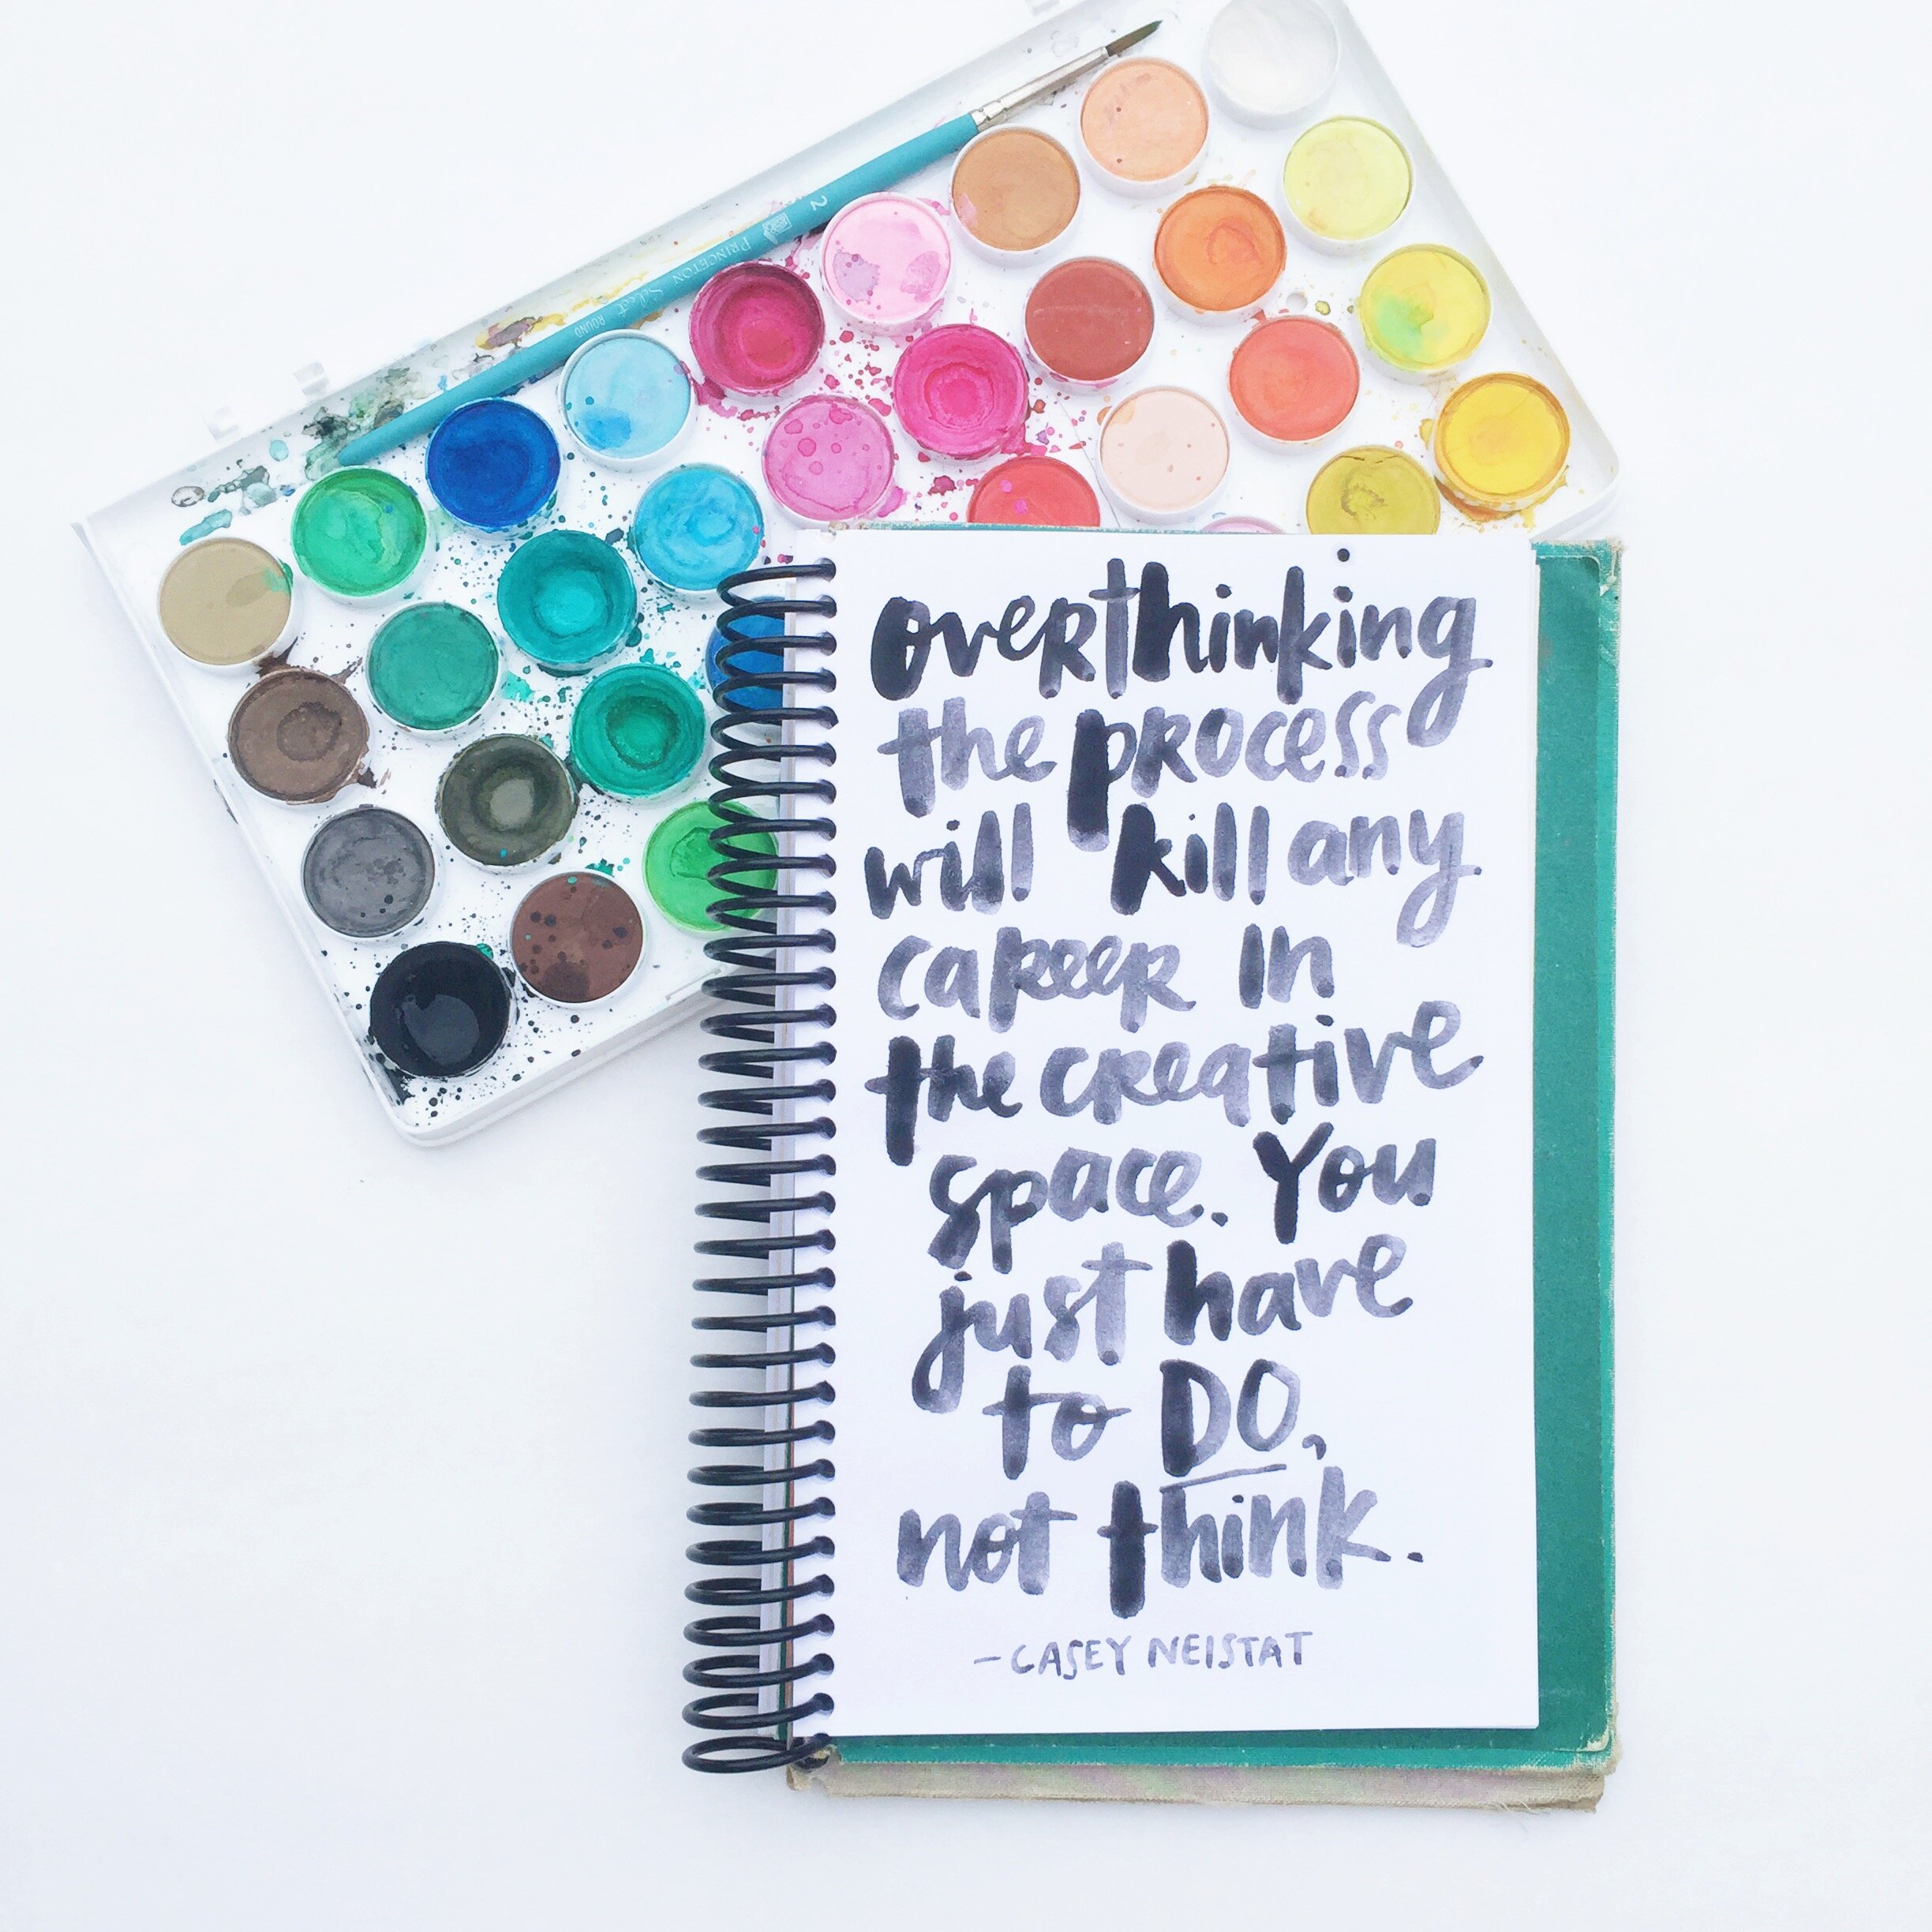 2 PRINCETON Select ROUND
overthinking
the process
will kill any
career in
the creative
space. You
just have
to DO,
not think.
– CASEY NEISTAT